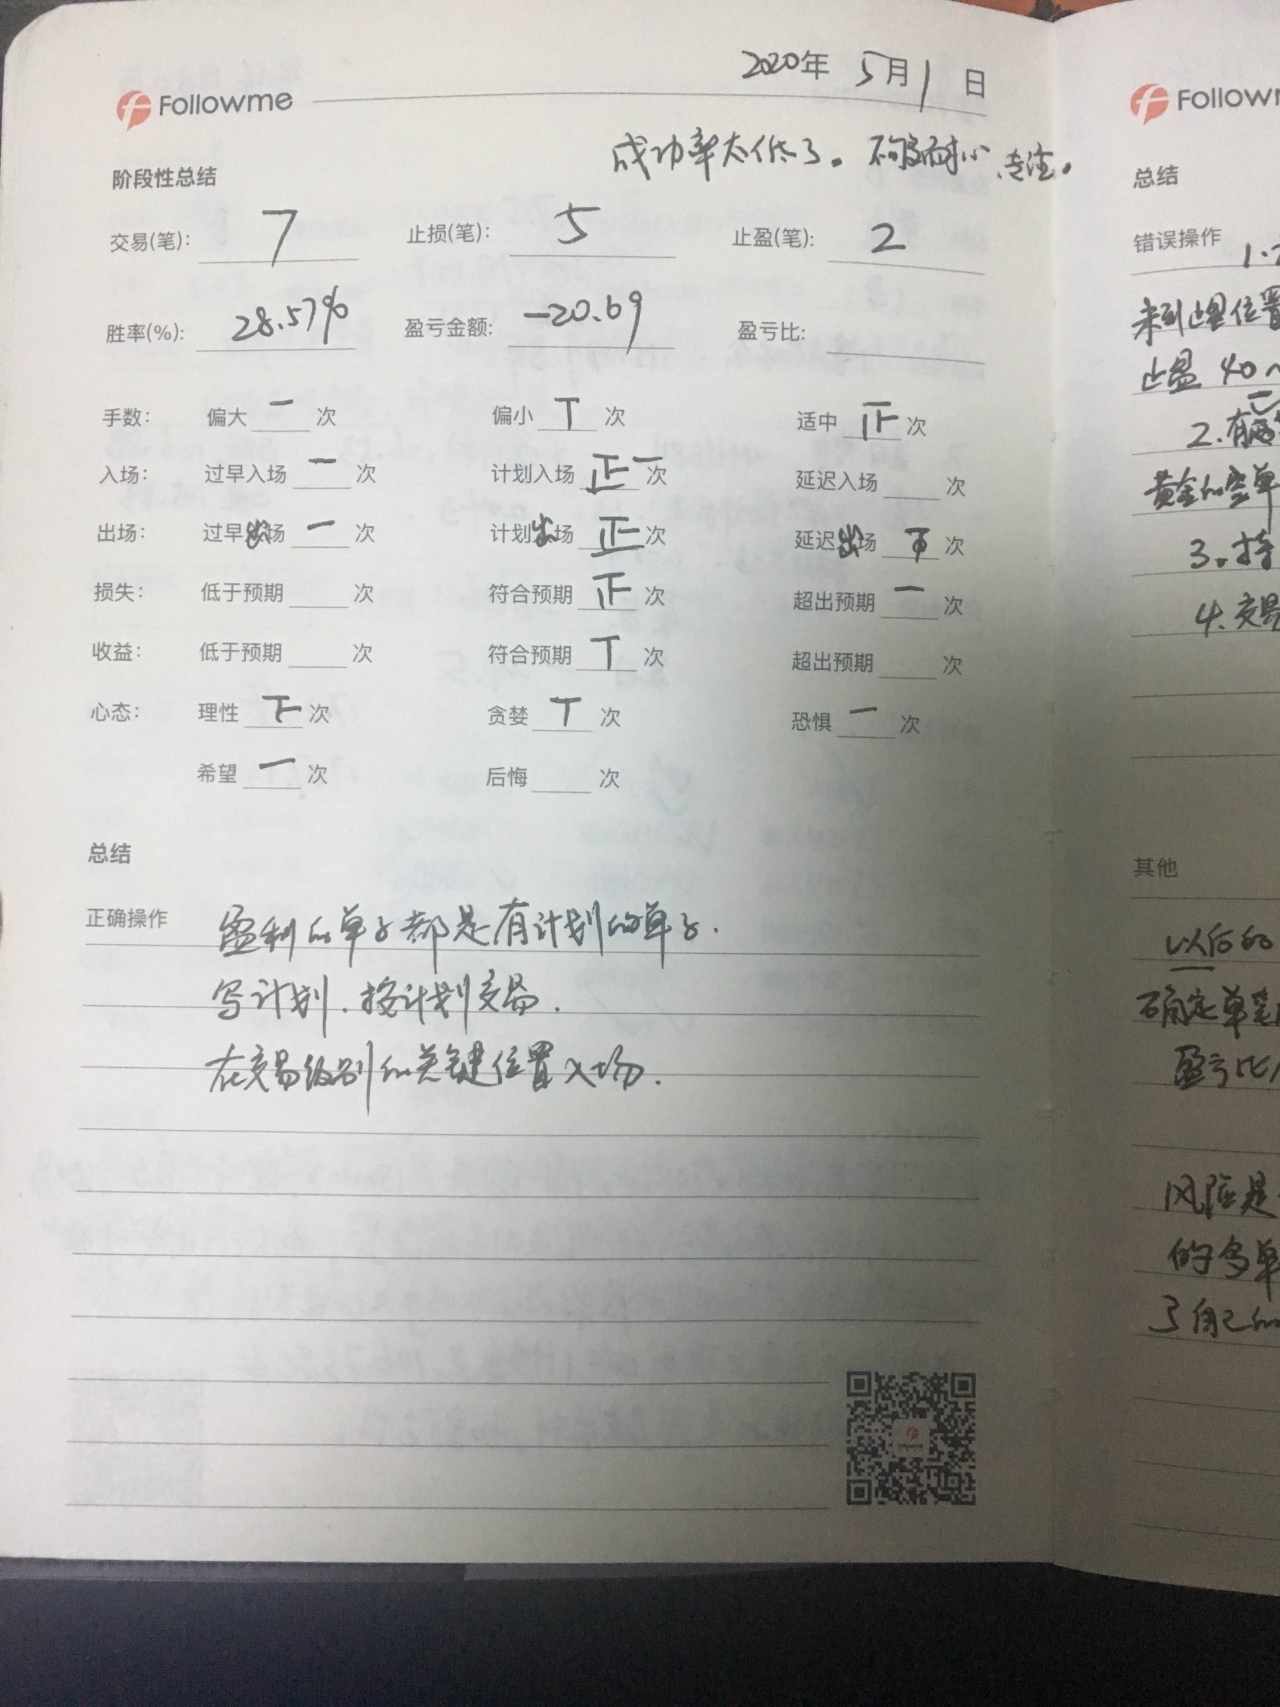 2020年 5月1日
Followme
成功率太低了。不够耐心、专注。
阶段性总结
交易(笔): 7 止损(笔): 5 止盈(笔): 2
胜率(%): 28.57% 盈亏金额: -20.69 盈亏比:
手数: 偏大 一 次 偏小 丅 次 适中 正 次
入场: 过早入场 一 次 计划入场 正一 次 延迟入场 次
出场: 过早出场 一 次 计划出场 正 次 延迟出场 次
损失: 低于预期 次 符合预期 正 次 超出预期 一 次
收益: 低于预期 次 符合预期 丅 次 超出预期 次
心态: 理性 下 次 贪婪 丅 次 恐惧 一 次
希望 一 次 后悔 次
总结
正确操作 盈利的单子都是有计划的单子.
写计划.按计划交易.
在交易级别的关键位置入场.
Follow
总结
错误操作 1.
未到止盈位置
止盈 40~
2.有
黄金的空单
3.持
4.交易
其他
以后的
确定单笔
盈亏比
风险是
的多单
了自己的